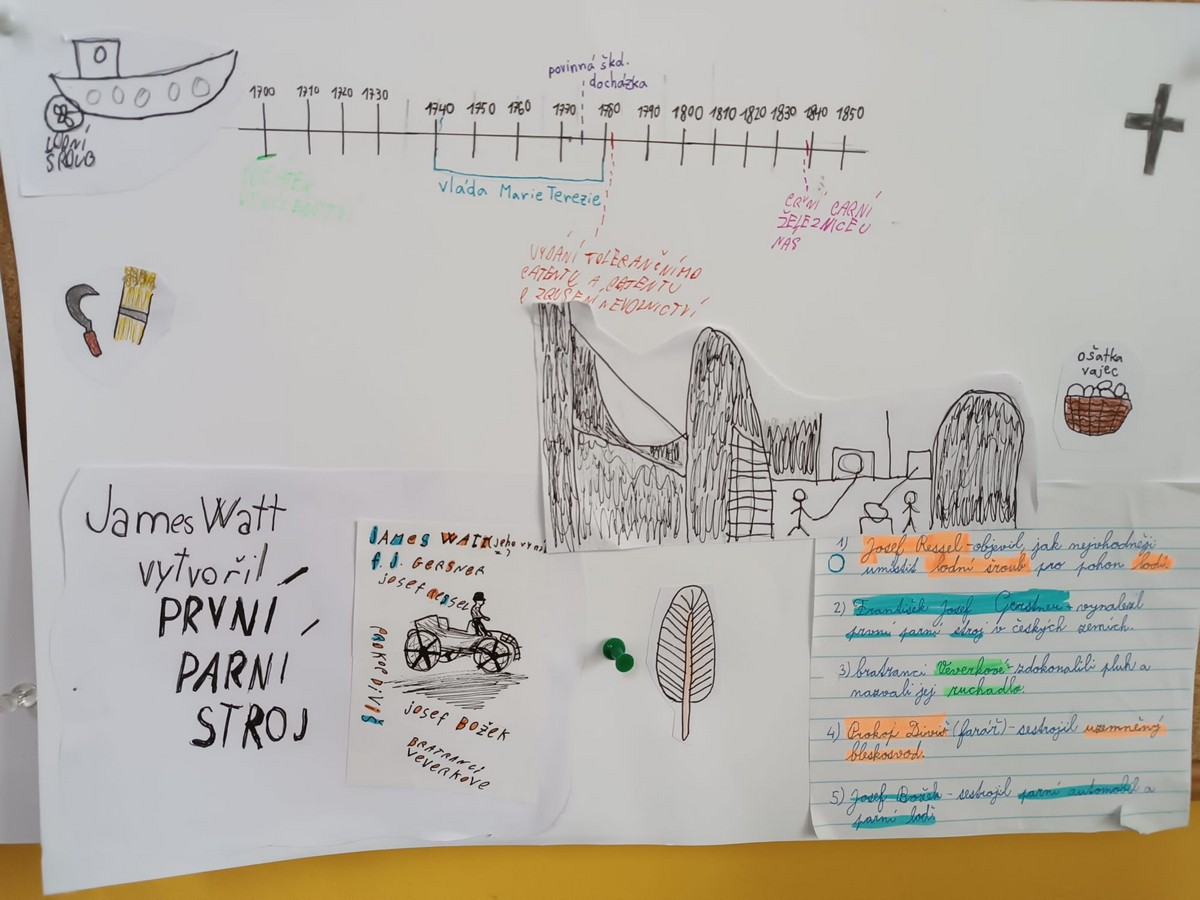 LODNÍ
ŠROUB
1700 1710 1720 1730 1740 1750 1760 1770 1780 1790 1800 1810 1820 1830 1840 1850
povinná škd.
docházka
vláda Marie Terezie
VYDÁNÍ TOLERANČNÍHO
PATENTU A PATENTU
O ZRUŠENÍ NEVOLNICTVÍ
PRVNÍ PARNÍ
ŽELEZNICE U
NÁS
ošatka
vajec
James Watt
vytvořil
PRVNÍ
PARNI
STROJ
JAMES WATT (jeho vy
F. J. GERSNER
josef Ressel
PROKOP DIVIŠ
josef BOŽEK
BRATRANCI
VEVERKOVE
1) Josef Ressel - objevil, jak nejvhodněji
umístit lodní šroub pro pohon lodí.
2) František Josef Gerstner - vynalezl
první parní stroj v českých zemích.
3) bratranci Veverkové - zdokonalili pluh a
nazvali jej ruchadlo.
4) Prokop Diviš (farář) - sestrojil uzemněný
bleskosvod.
5) Josef Božek - sestrojil parní automobil a
parní lodi